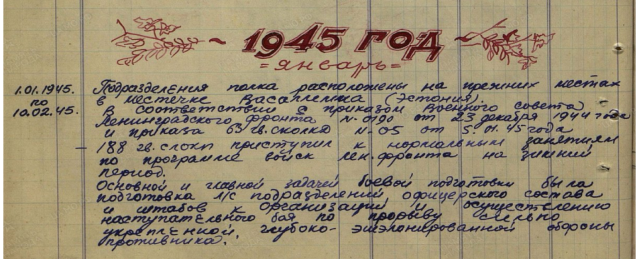 ~ 1945 ГОД ~
= январь =
1.01.1945. Подразделения полка расположены на прежних местах
по в местечке Васалемма (Эстония)
10.02.45. в соответствии с приказом Военного совета
Ленинградского фронта N-0190 от 23 декабря 1944 года
и приказа 63 гв. склкд N-05 от 5.01.45 года
188 гв. слкп приступил к нормальным занятиям
по программе войск Лен. фронта на зимний
период.
Основной и главной задачей боевой подготовки была
подготовка л/с подразделений офицерского состава
и штабов к организации и осуществлению
наступательного боя по прорыву сильно
укрепленной, глубоко-эшелонированной обороны
противника.